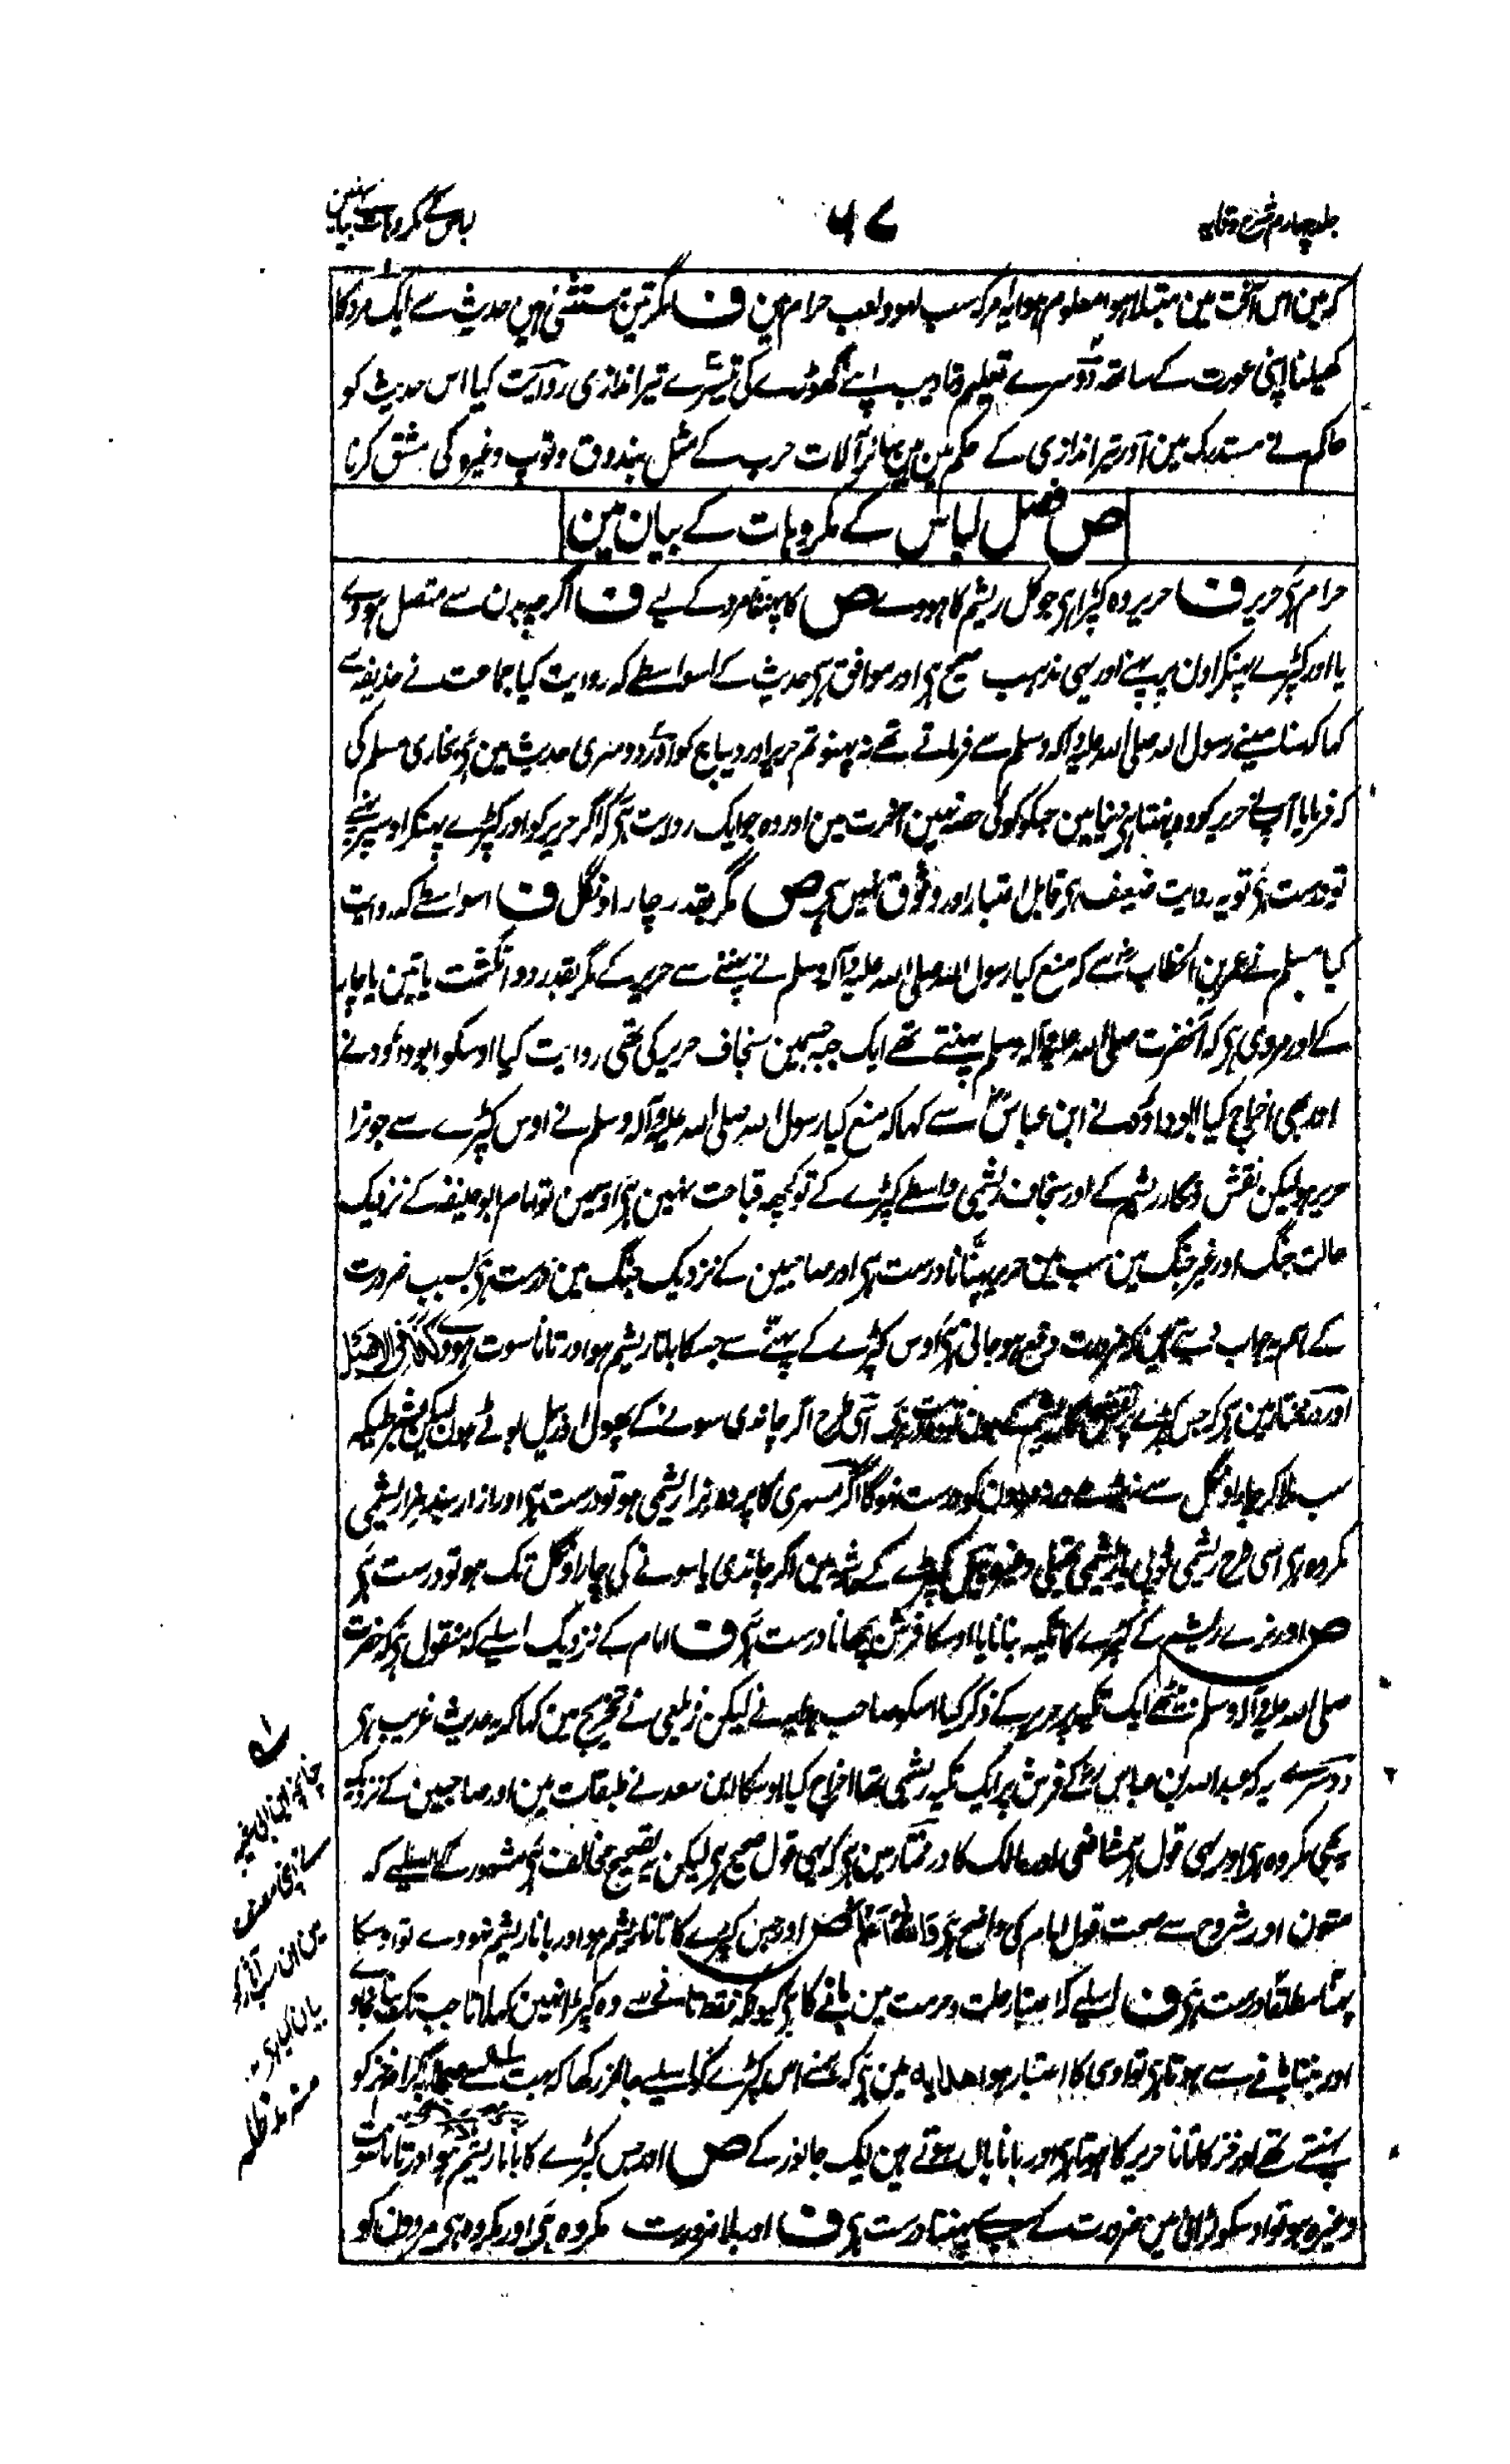 جلد چہارم شرح وقایہ
۵۷
لباس کے مکروہات کے بیان مین
کہ مین اس آفت مین مبتلا ہوا معلوم ہوا یہ امر کہ سب لہو و لعب حرام ہین ف مگر تین مستثنیٰ ہین حدیث سے ایک مرد کا
کھیلنا اپنی عورت کے ساتھ دوسرے تعلیم و تادیب اپنے گھوڑے کی تیسرے تیر اندازی روایت کیا اس حدیث کو
حاکم نے مستدرک مین اور تیر اندازی کے حکم مین ہین سائر آلات حرب کے مثل بندوق و توپ وغیرہ کی مشق کرنا
ص فصل لباس کے مکروہات کے بیان مین
حرام ہی حریر ف حریر وہ کپڑا ہی جو کل ریشم کا ہووے ص کا پہننا مرد کے لیے ف اگرچہ بدن سے متصل ہووے
یا اور کپڑے پہنکر اون پر پہنے اور یہی مذہب صحیح ہی اور موافق ہی حدیث کے اسواسطے کہ روایت کیا جماعت نے حذیفہ سے
کہا کہ سنا مینے رسول اللہ صلی اللہ علیہ وآلہ وسلم سے فرماتے تھے نہ پہنو تم حریر اور دیباج کو اور دوسری حدیث مین ہی بخاری مسلم کی
کہ فرمایا آپنے حریر کو وہ پہنتا ہی دنیا مین جسکو کوئی حصہ نہین آخرت مین اور وہ جو ایک روایت ہی کہ اگر حریر کو اور کپڑے پہنکر اوسپر پہنے
تو درست ہی تو یہ روایت ضعیف ہی قابل اعتبار اور وثوق نہین ہی ص مگر بقدر چار اونگل ف اسواسطے کہ روایت
کیا مسلم نے عمر بن الخطاب سے کہ منع کیا رسول اللہ صلی اللہ علیہ وآلہ وسلم نے پہننے سے حریر کے مگر بقدر دو انگشت یا تین یا چار
کے اور مروی ہی کہ آنحضرت صلی اللہ علیہ وآلہ وسلم پہنتے تھے ایک جبہ جسمین سنجاف حریر کی تھی روایت کیا اوسکو ابو داؤد نے
اور بھی اخراج کیا ابو داؤد نے ابن عباس سے کہا کہ منع کیا رسول اللہ صلی اللہ علیہ وآلہ وسلم نے اوس کپڑے سے جو نرا
حریر ہو لیکن نقش و نگار ریشم کے اور سنجاف ریشمی واسطے کپڑے کے تو کچھ قباحت نہین ہی اوسمین تو امام ابو حنیفہ کے نزدیک
حالت جنگ اور غیر جنگ مین سب مین حریر پہننا نادرست ہی اور صاحبین کے نزدیک جنگ مین درست ہی بسبب ضرورت
کے ہم یہ جواب دیتے ہین کہ ضرورت دفع ہو جاتی ہی اوس کپڑے کے پہننے سے جسکا بانا ریشم ہو اور تانا سوت ہووے کذا فی الاصل
اور در مختار مین ہی کہ جس کپڑے پر نقش نگار ریشم کے ہون تو درست ہی اسی طرح اگر چاندی سونے کے پھول اور بیل بوٹے ہون لیکن بشرطیکہ
سب ملا کر چار اونگل سے نہ ورنہ مردون کو درست نہوگا اگر مسہری کا پردہ نرا ریشمی ہو تو درست ہی اور ازار بند نرا ریشمی
مکروہ ہی اسی طرح ریشمی ٹوپی یا ریشمی تھیلی وغیرہ لیکن کپڑے کے مین اگر چاندی یا سونے کی چار اونگل تک ہو تو درست ہی
ص اور نرے ریشم کے کپڑے کا تکیہ بنانا یا اوسکا فرش بچھانا درست ہی ف امام کے نزدیک اسلیے کہ منقول ہی کہ حضرت
صلی اللہ علیہ وآلہ وسلم بیٹھے ایک تکیہ پر حریر کے ذکر کیا اسکو صاحب ہدایہ نے لیکن زیلعی نے تخریج مین کہا کہ یہ حدیث غریب ہی
دوسرے یہ کہ عبداللہ بن عباس کے فرش پر ایک تکیہ ریشمی تھا اخراج کیا اوسکا ابن سعد نے طبقات مین اور صاحبین کے نزدیک
یہ بھی مکروہ ہی اور یہی قول ہی شافعی اور مالک کا در مختار مین ہی کہ یہی قول صحیح ہی لیکن یہ تصحیح مخالف ہی مشہور کے اسلیے کہ
متون اور شروح سے صحت قول امام کی واضح ہی ص اور جس کپڑے کا تانا ریشم ہو اور بانا ریشم نہووے تو اوسکا
پہننا مطلقاً درست ہی ف اسلیے کہ اعتبار حلت و حرمت مین بانے کا ہی کیونکہ فقط تانے سے وہ کپڑا نہین کہلاتا جب تک بنا نجاوے
اور بننا بانے سے ہوتا ہی تو اوسی کا اعتبار ہوا ہدایہ مین ہی کہ ہمنے اس کپڑے کو اسلیے جائز رکھا کہ بہت سے صحابہ کرام خز کو
پہنتے تھے اور خز کا تانا حریر کا ہوتا ہی اور بانا بال ہوتے ہین ایک جانور کے ص اور جس کپڑے کا بانا ریشم ہو اور تانا سوت
وغیرہ ہو تو اوسکو لڑائی مین ضرورت کے لیے پہننا درست ہی ف اور بلا ضرورت مکروہ ہی اور مکروہ ہی مردون کو
چنانچہ ابن ابی شیبہ
نے اپنی مصنف
مین ان سب آثار کو
بیان کیا ہی
منہ مد ظلہ